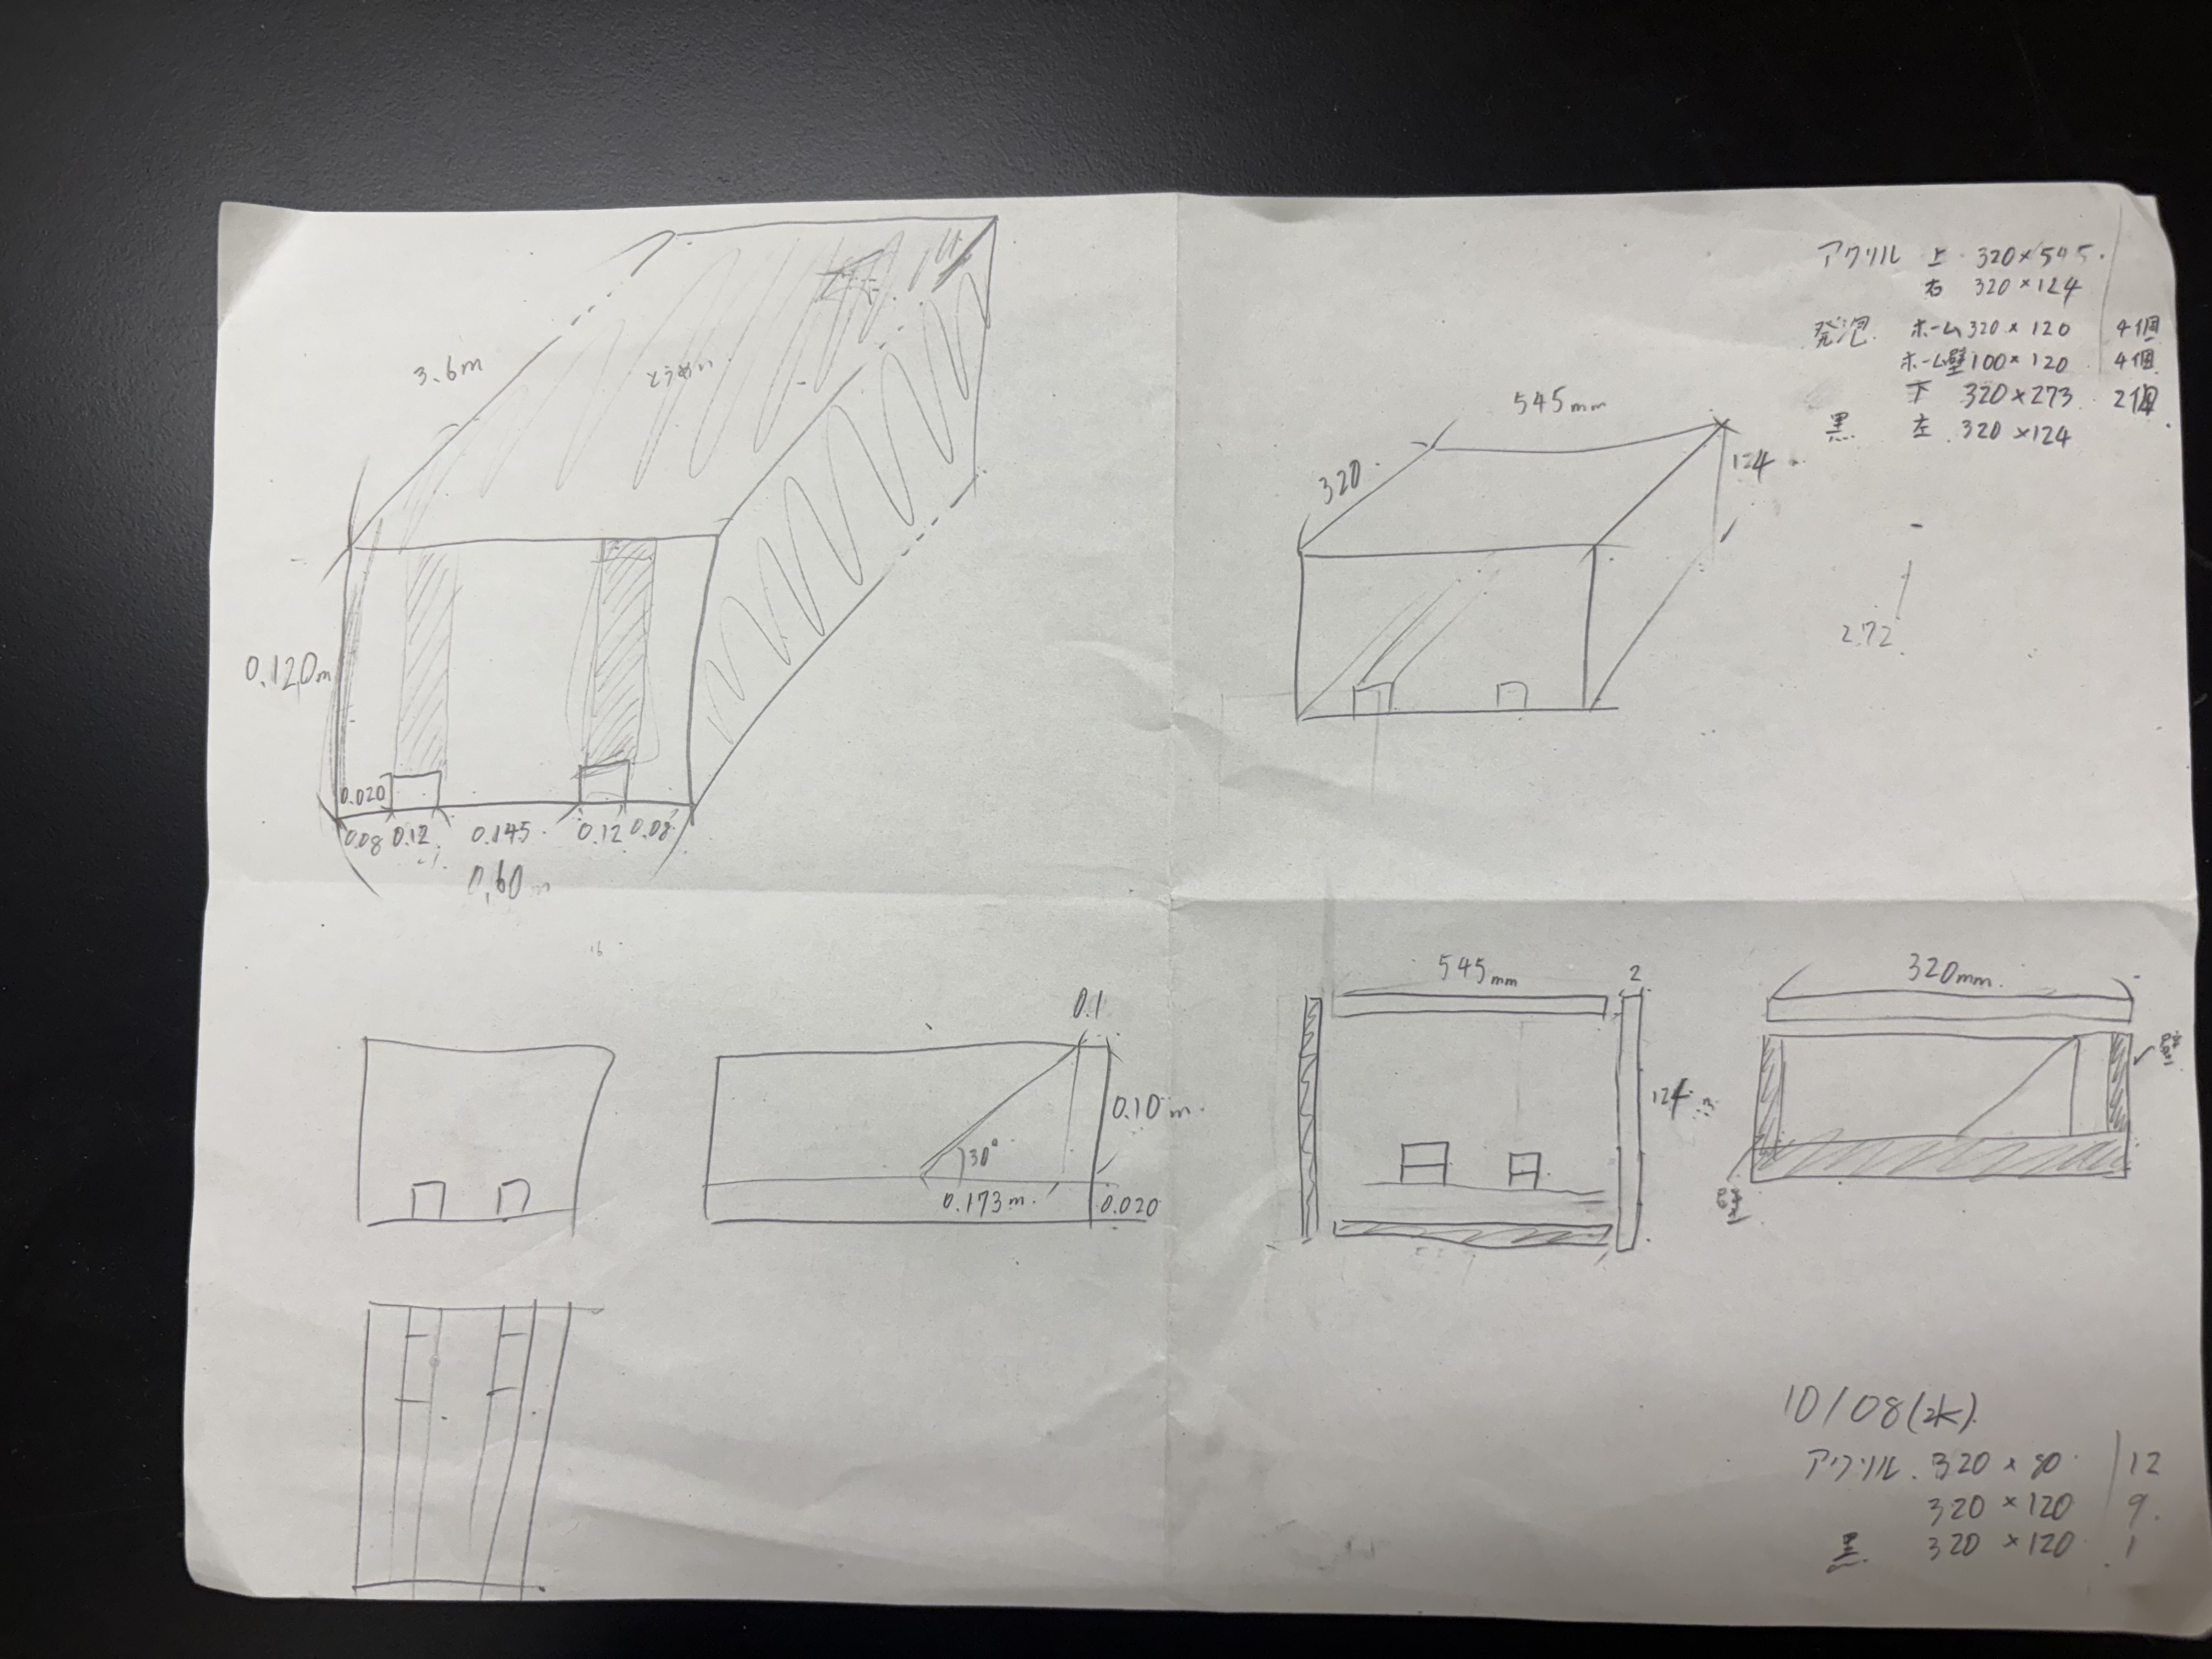 3.6m
とうめい
0.120m
0.020
0.08 0.12 0.145 0.12 0.08
0.60m
アクリル 上 320×545.
右 320×124
発泡 ホーム 320×120 4個
ホーム壁 100×120 4個
下 320×273 2個
黒 左 320×124
545mm
320
124
2.72
0.1
0.10m
30°
0.173m
0.020
545mm
2
124
320mm
10/08(水)
アクリル 320×80 12
320×120 9
黒 320×120 1